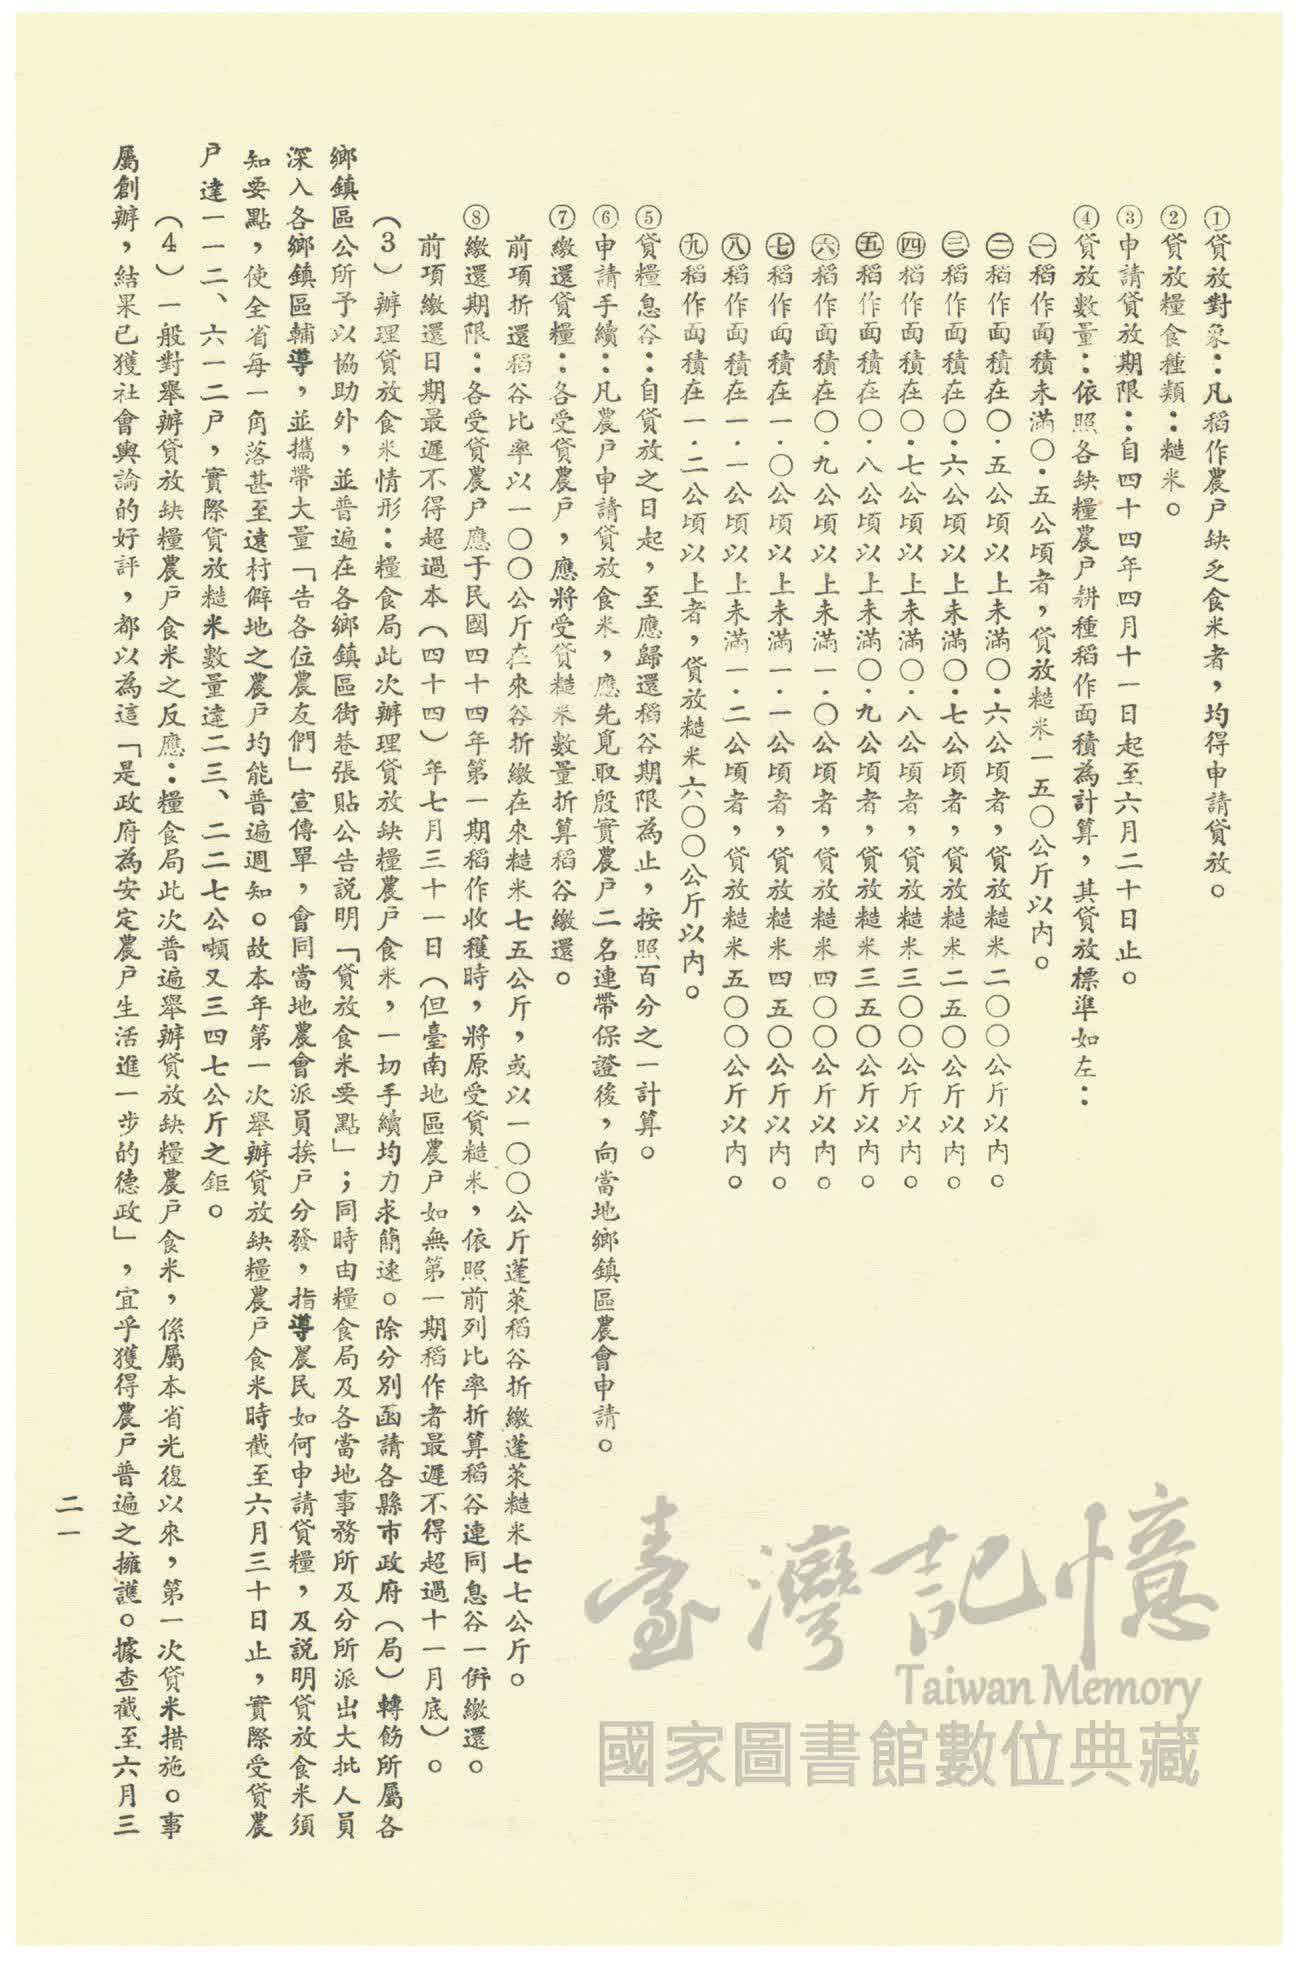 ①貸放對象：凡稻作農戶缺乏食米者，均得申請貸放。
②貸放糧食種類：糙米。
③申請貸放期限：自四十四年四月十一日起至六月二十日止。
④貸放數量：依照各缺糧農戶耕種稻作面積為計算，其貸放標準如左：
㊀稻作面積未滿〇・五公頃者，貸放糙米一五〇公斤以內。
㊁稻作面積在〇・五公頃以上未滿〇・六公頃者，貸放糙米二〇〇公斤以內。
㊂稻作面積在〇・六公頃以上未滿〇・七公頃者，貸放糙米二五〇公斤以內。
㊃稻作面積在〇・七公頃以上未滿〇・八公頃者，貸放糙米三〇〇公斤以內。
㊄稻作面積在〇・八公頃以上未滿〇・九公頃者，貸放糙米三五〇公斤以內。
㊅稻作面積在〇・九公頃以上未滿一・〇公頃者，貸放糙米四〇〇公斤以內。
㊆稻作面積在一・〇公頃以上未滿一・一公頃者，貸放糙米四五〇公斤以內。
㊇稻作面積在一・一公頃以上未滿一・二公頃者，貸放糙米五〇〇公斤以內。
㊈稻作面積在一・二公頃以上者，貸放糙米六〇〇公斤以內。
⑤貸糧息谷：自貸放之日起，至應歸還稻谷期限為止，按照百分之一計算。
⑥申請手續：凡農戶申請貸放食米，應先覓取殷實農戶二名連帶保證後，向當地鄉鎮區農會申請。
⑦繳還貸糧：各受貸農戶，應將受貸糙米數量折算稻谷繳還。
前項折還稻谷比率以一〇〇公斤在來谷折繳在來糙米七五公斤，或以一〇〇公斤蓬萊稻谷折繳蓬萊糙米七七公斤。
⑧繳還期限：各受貸農戶應于民國四十四年第一期稻作收穫時，將原受貸糙米，依照前列比率折算稻谷連同息谷一併繳還。
前項繳還日期最遲不得超過本（四十四）年七月三十一日（但臺南地區農戶如無第一期稻作者最遲不得超過十一月底）。
（3）辦理貸放食米情形：糧食局此次辦理貸放缺糧農戶食米，一切手續均力求簡速。除分別函請各縣市政府（局）轉飭所屬各
鄉鎮區公所予以協助外，並普遍在各鄉鎮區街巷張貼公告說明「貸放食米要點」；同時由糧食局及各當地事務所及分所派出大批人員
深入各鄉鎮區輔導，並攜帶大量「告各位農友們」宣傳單，會同當地農會派員挨戶分發，指導農民如何申請貸糧，及說明貸放食米須
知要點，使全省每一角落甚至遠村僻地之農戶均能普遍週知。故本年第一次舉辦貸放缺糧農戶食米時截至六月三十日止，實際受貸農
戶達一一二、六一二戶，實際貸放糙米數量達二三、二二七公噸又三四七公斤之鉅。
（4）一般對舉辦貸放缺糧農戶食米之反應：糧食局此次普遍舉辦貸放缺糧農戶食米，係屬本省光復以來，第一次貸米措施。事
屬創辦，結果已獲社會輿論的好評，都以為這「是政府為安定農戶生活進一步的德政」，宜乎獲得農戶普遍之擁護。據查截至六月三
二一
臺灣記憶
Taiwan Memory
國家圖書館數位典藏